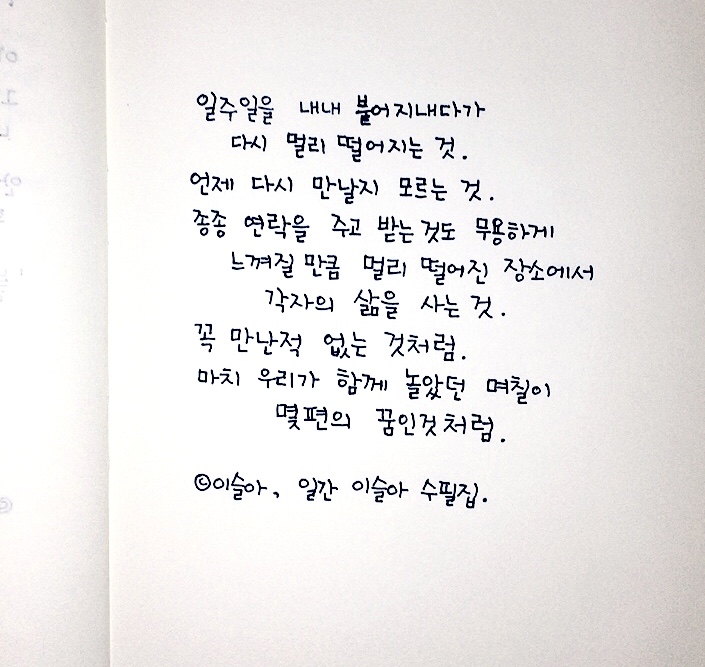 일주일을 내내 붙어지내다가
다시 멀리 떨어지는 것.
언제 다시 만날지 모르는 것.
종종 연락을 주고 받는것도 무용하게
느껴질 만큼 멀리 떨어진 장소에서
각자의 삶을 사는 것.
꼭 만난적 없는 것처럼.
마치 우리가 함께 놀았던 며칠이
몇편의 꿈인것처럼.
©이슬아, 일간 이슬아 수필집.